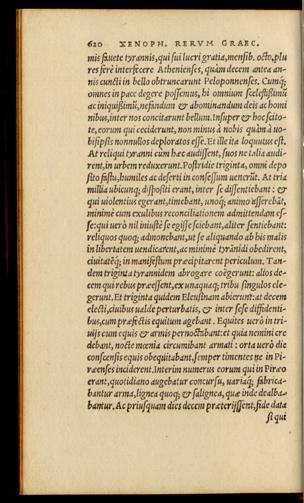 620 XENOPH. RERVM GRAEC.
mis fauete tyrannis, qui sui lucri gratia, mensib. octo, plu
res ferè interfecere Athenienses, quàm decem antea an-
nis cuncti in bello obtruncarunt Peloponnenses. Cumq́;
omnes in pace degere possemus, hi omnium scelestissimũ
ac iniquissimũ, nefandum & abominandum deis ac homi
nibus, inter nos concitarunt bellum. Insuper & hoc scito-
te, eorum qui ceciderunt, non minus à nobis quàm à uo-
bisipsis nonnullos deploratos esse. Et ille ita loquutus est.
At reliqui tyranni cùm hæc audissent, suos ne talia audi-
rent, in urbem reduxerunt. Postridie triginta, omni depo
sito fastu, humiles ac deserti in consessum uenerũt. At tria
millia ubicunq; dispositi erant, inter se dissentiebant: &
qui uiolentius egerant, timebant, unoq́; animo asserebãt,
minimè cum exulibus reconciliationem admittendam es-
se: qui uerò nil iniustè se egisse sciebant, aliter sentiebant:
reliquos quoq; admonebant, ut se aliquando ab his malis
in libertatem uendicarent, ac minimè tyrãnidi obedirent,
ciuitatẽq́; in manifestum præcipitarent periculum. Tan-
dem triginta tyrannidem abrogare coëgerunt: alios de-
cem qui rebus præessent, ex unaquaq; tribu singulos ele-
gerunt. Et triginta quidem Eleusinam abierunt: at decem
electi, ciuibus ualde perturbatis, & inter sese diffidenti-
bus, cum præfectis equitum agebant. Equites uerò in tri-
uijs cum equis & armis pernoctabant: et quia nemini cre
debant, nocte mœnia circumibant armati: orta uerò die
conscensis equis obequitabant, semper timentes ne in Pi-
ræenses inciderent. Interim numerus eorum qui in Piræo
erant, quotidiano augebatur concursu, uariaq́; fabrica-
bantur arma, lignea quoq; & salignea, quæ inde dealba-
bantur. Ac priusquam dies decem præterijssent, fide data
si qui